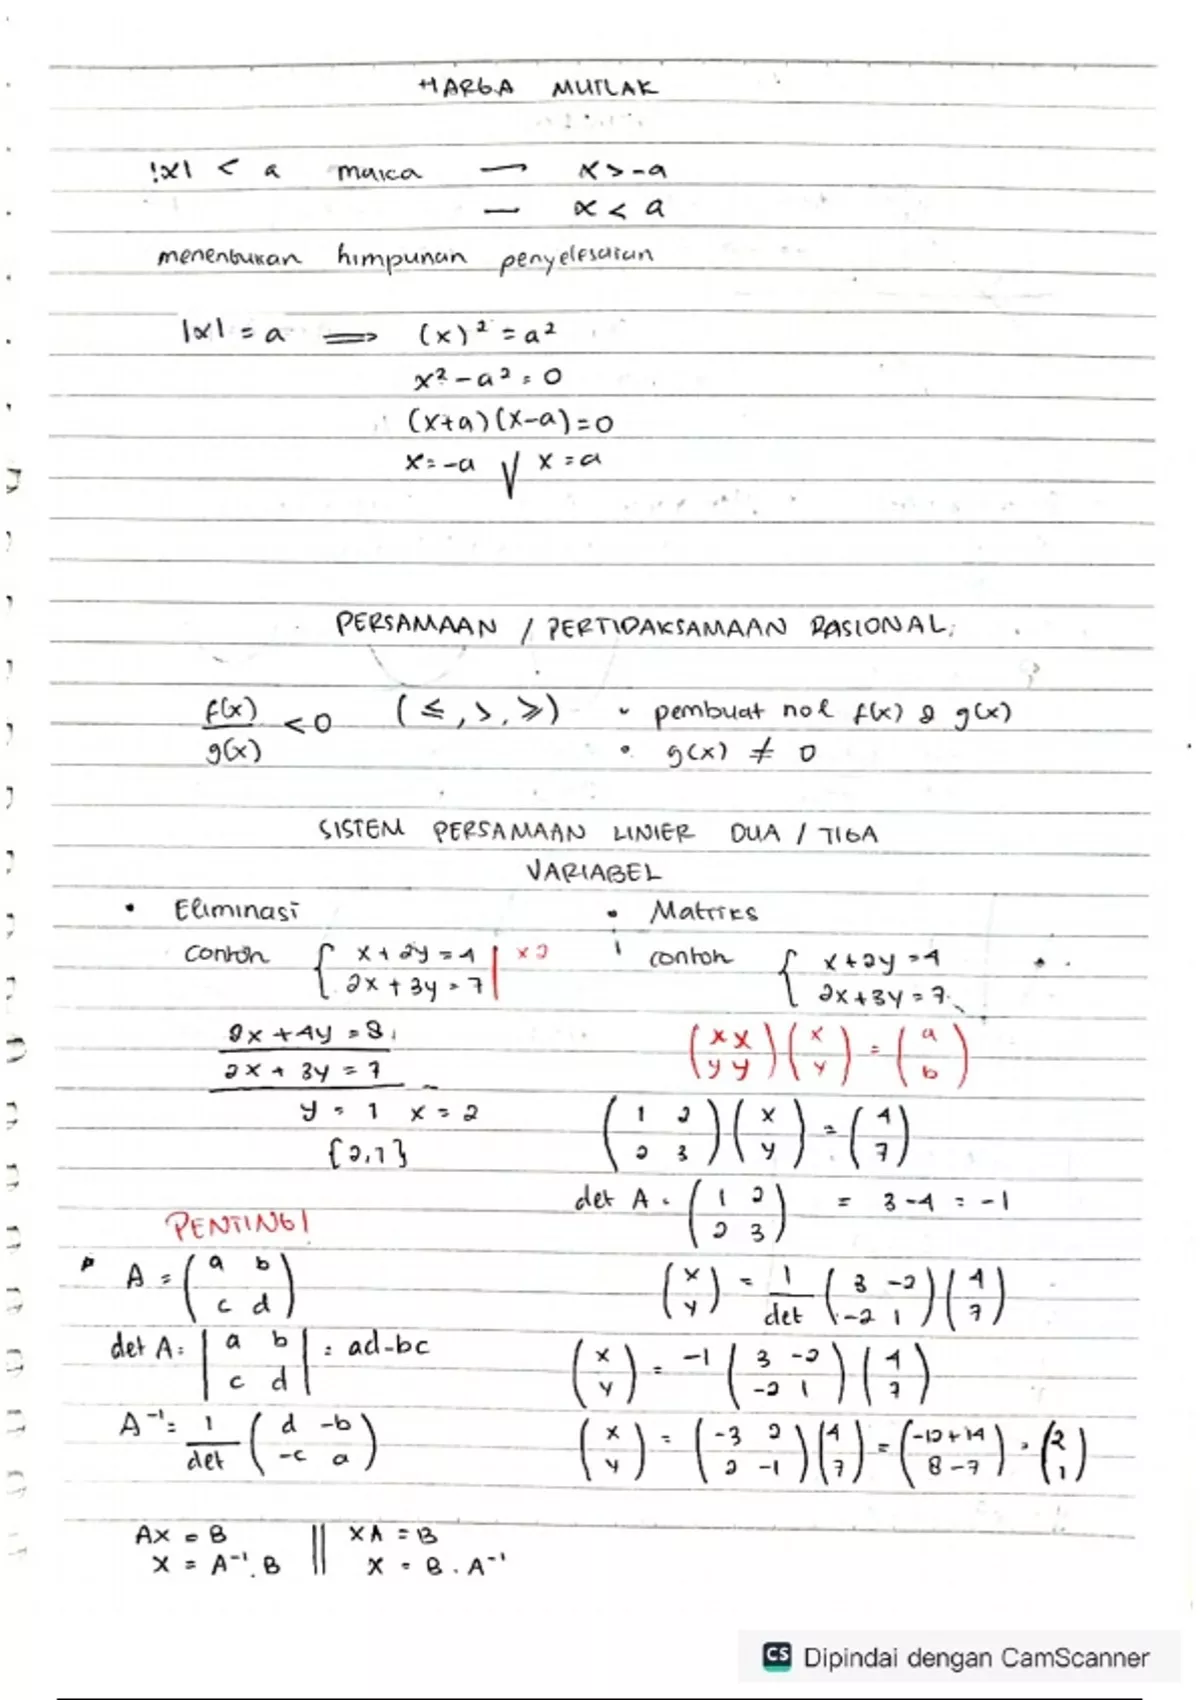 HARGA MUTLAK
|x| < a maka — x > -a
— x < a
menentukan himpunan penyelesaian
|x| = a ⟹ (x)² = a²
x² - a² = 0
(x+a)(x-a) = 0
x = -a √ x = a
PERSAMAAN / PERTIDAKSAMAAN RASIONAL;
f(x)/g(x) < 0 (≤, >, ≥) • pembuat nol f(x) & g(x)
• g(x) ≠ 0
SISTEM PERSAMAAN LINIER DUA / TIGA
VARIABEL
• Eliminasi
contoh { x + 2y = 4 | x2
2x + 3y = 7
2x + 4y = 8
2x + 3y = 7 -
y = 1 x = 2
{2,1}
PENTING!
A = (a b
c d)
det A = |a b
c d| = ad-bc
A⁻¹ = 1/det (d -b
-c a)
AX = B || XA = B
X = A⁻¹.B || X = B.A⁻¹
• Matriks
contoh { x + 2y = 4
2x + 3y = 7
(x x
y y) (x
y) = (a
b)
(1 2
2 3) (x
y) = (4
7)
det A = (1 2
2 3) = 3-4 = -1
(x
y) = 1/det (3 -2
-2 1) (4
7)
(x
y) = -1 (3 -2
-2 1) (4
7)
(x
y) = (-3 2
2 -1) (4
7) = (-12+14
8-7) = (2
1)
CS Dipindai dengan CamScanner